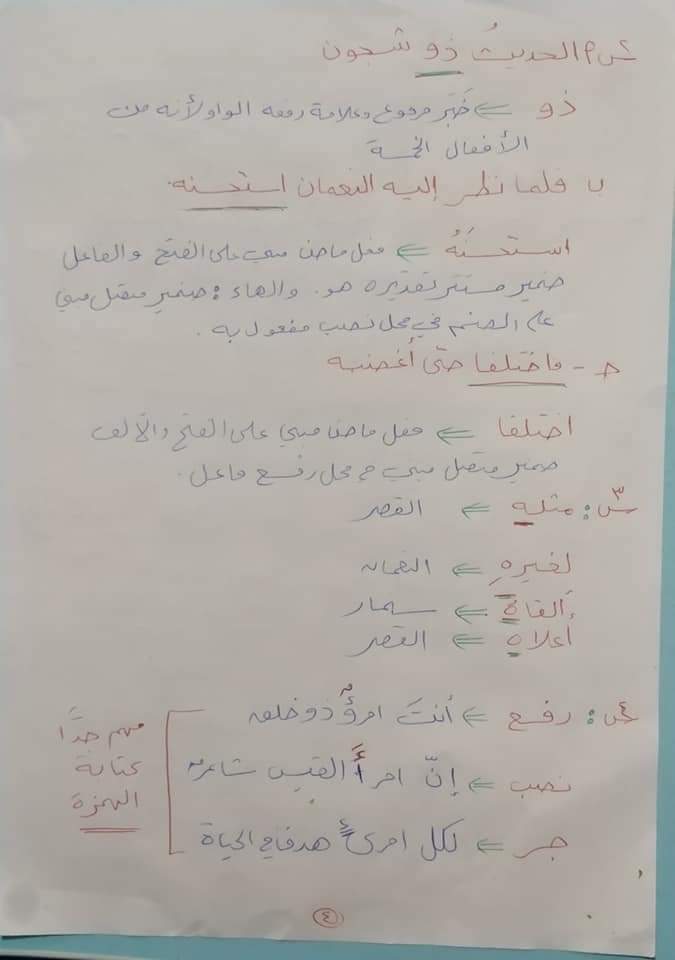 س٢ الحديثُ ذو شجون
ذو ⇐ خَبَر مرفوع وعلامة رفعه الواو لأنه من
الأفعال الخمسة
ب فلما نظر إليه النعمان استحسنه.
استحسَنَهُ ⇐ فعل ماضٍ مبني على الفتح والفاعل
ضمير مستتر تقديره هو. والهاء: ضمير متصل مبني
على الضم في محل نصب مفعول به.
ج - فاختلفا حتى أغضبه
اختلفا ⇐ فعل ماضٍ مبني على الفتح والألف
ضمير متصل مبني في محل رفع فاعل.
س٣: مثله ⇐ القصر
لغيرهِ ⇐ النعمان
ألقاهُ ⇐ سنمار
أعلاهِ ⇐ القصر
س٤: رفع ⇐ أنتَ امرؤٌ ذو خلق
نصب ⇐ إنّ امرأَ القيس شاعر
جر ⇐ لكل امرئٍ هدف في الحياة
مهم جدًّا
كتابة
الهمزة
٤